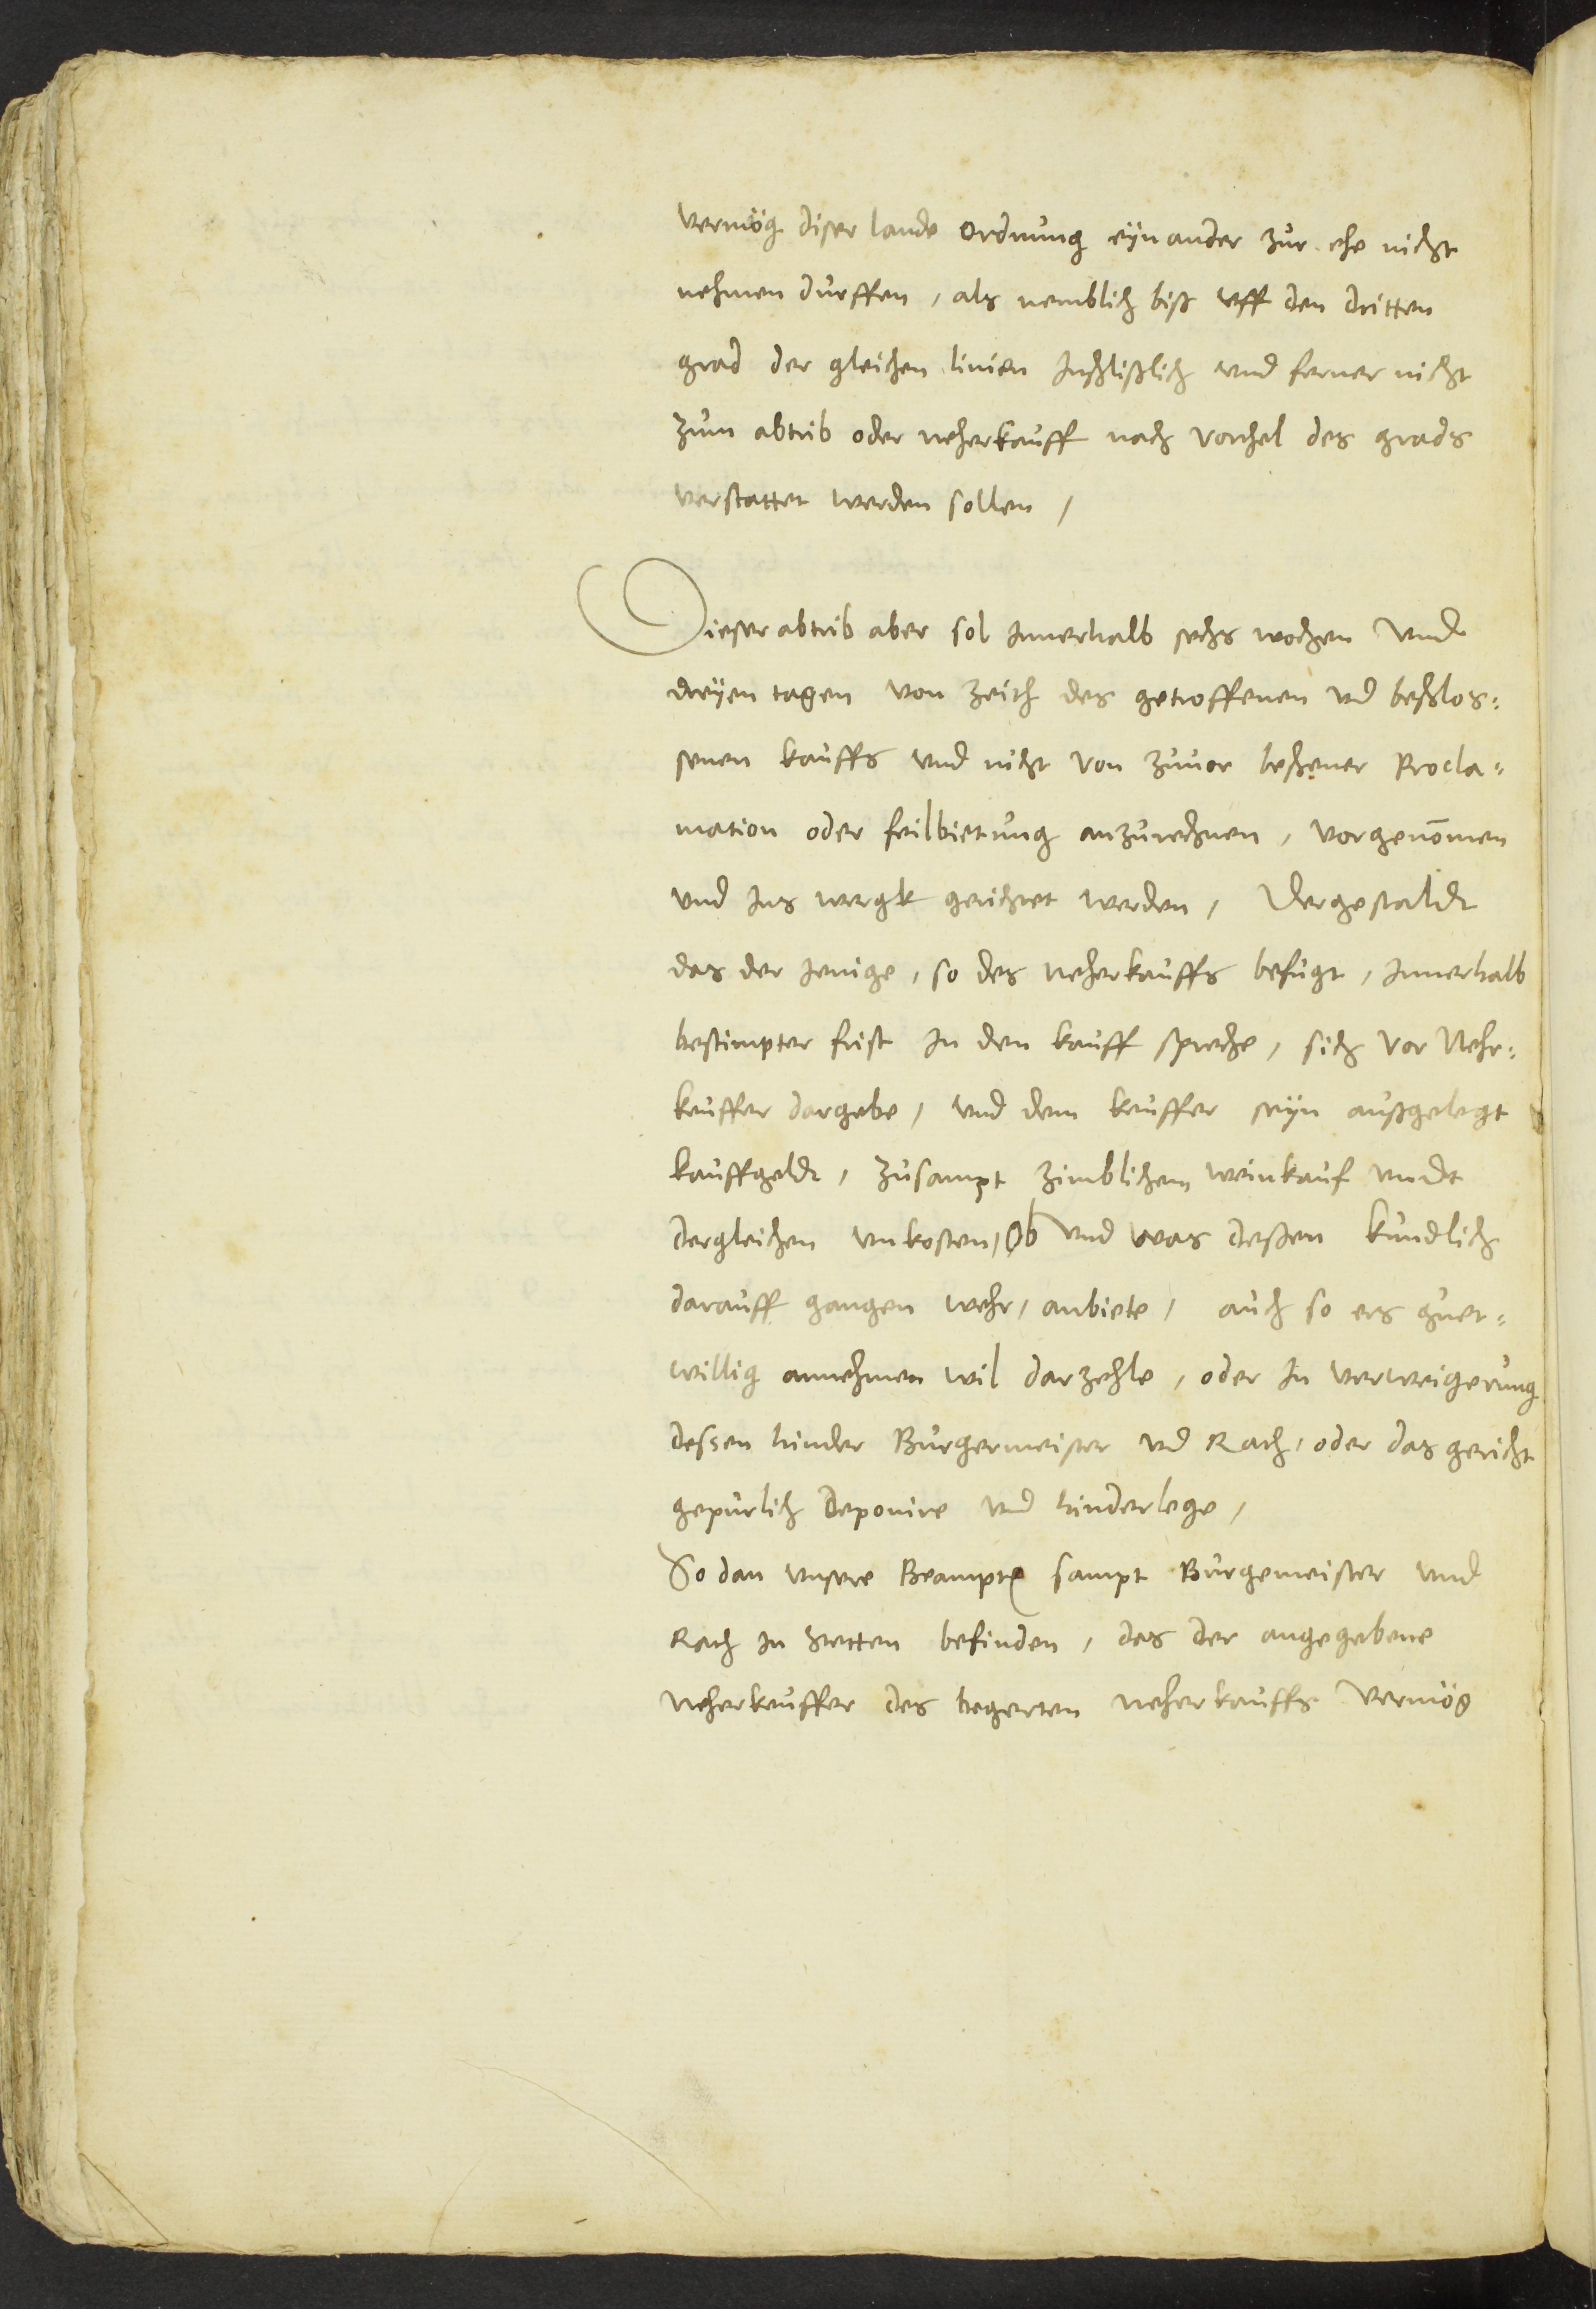 vermög diser lands ordnung eÿnander zur ehe nicht
nehmen durffen, als nemblich biß vff den dritten
grad der gleichen linien Inschlißlich vnd ferner nicht
zum abtrib oder neherkauff nach vorthel des grads
verstattet werden sollen,
Dieser abtrib aber sol Innerhalb sechs wochen vnd
dreÿen tagen von Zeith des getroffenen vnd beschlos=
senen kauffs vnd nicht von zuuor beschener Procla=
mation oder feilbietung anzurechnen, vorgenom̄en
vnd Ins wergk gerichtet werden, Dergestaldt
das der Jenige, so des neherkauffs befugt, Innerhalb
bestimpter frist In den kauff spreche, sich vor Nehr=
keuffer dargebe, vnd dem keuffer seÿn außgelegt
kauffgeldt, zusampt zimblichem weinkauf vndt
dergleichen vnkosten, Ob vnd was deßen kundlich
darauff gangen wehr, anbiete, auch so ers guet=
willig annehmen wil darzehle, oder In verweigerung
dessen hinder Burgermeister vnd Rath, oder das gericht
gepurlich deponire vnd hinderlege,
So dan vnsere Beampte sampt Burgemeister vnd
Rath In Stetten befinden, das der angegebene
neherkeuffer des begerten neherkauffs vermög